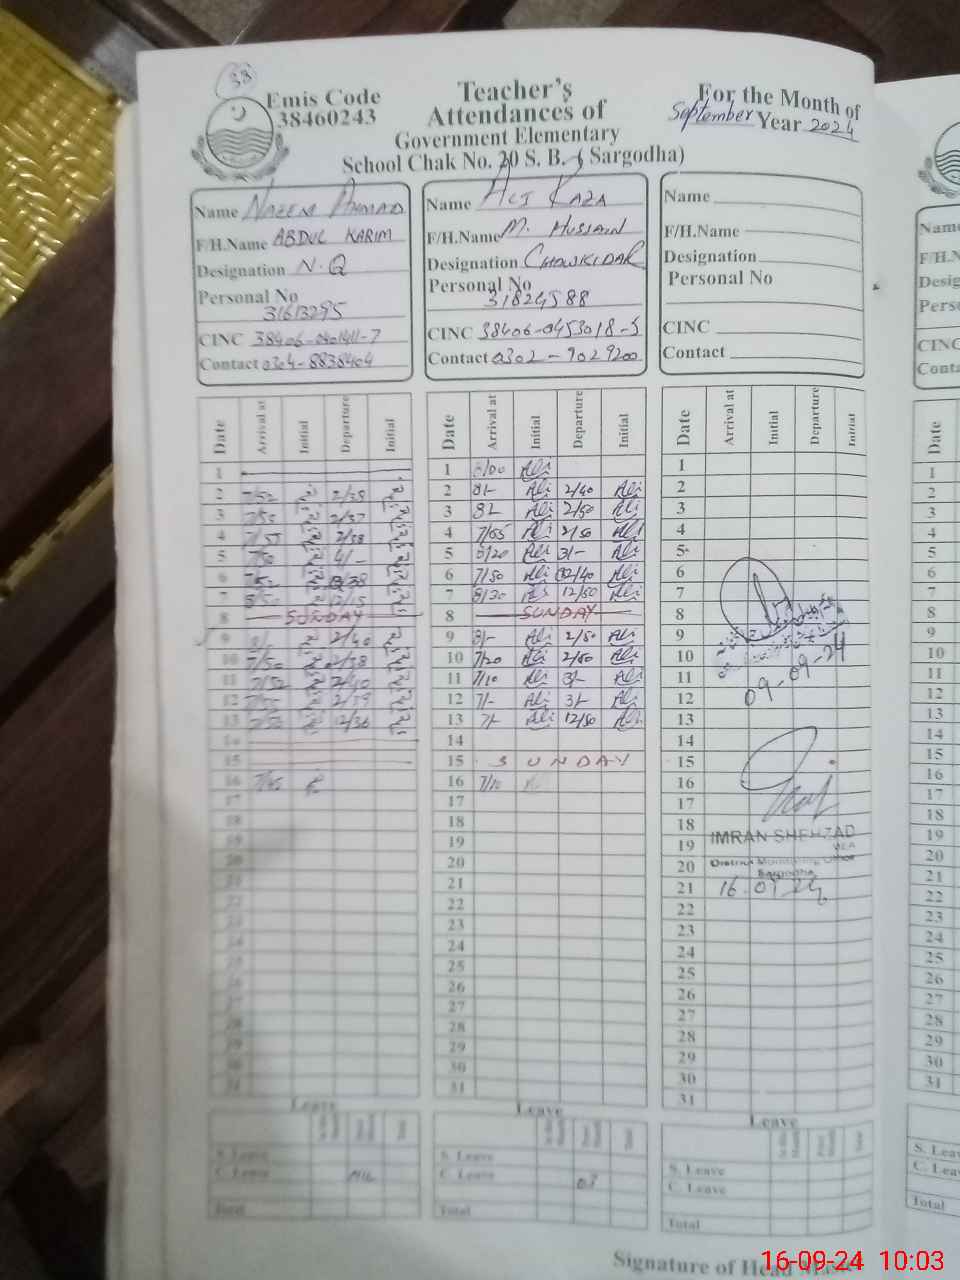 33
Emis Code
38460243
Teacher's
Attendances of
Government Elementary
School Chak No. 20 S. B. ( Sargodha)
For the Month of
September Year 2024
Name NAZEM AHMAD
F/H.Name ABDUL KARIM
Designation N.Q
Personal No
31613295
CINC
Contact 0304-8838404
Name ALI RAZA
F/H.Name M. HUSSAIN
Designation CHOWKIDAR
Personal No
31824588
CINC 38406-0453018-5
Contact 0302-9029200
Name
F/H.Name
Designation
Personal No
CINC
Contact
Date Arrival at Initial Departure Initial
1
2 7/52 2/38
3 7/55 2/37
4 7/55 2/38
5 7/50 4/-
6 7/52
7 12/15
8 SUNDAY
9 8/- 2/40
10 7/50 2/38
11 7/52 2/40
12 7/55 2/39
13 12/36
14
15
16 7/45
17
18
19
20
21
22
23
24
25
26
27
28
29
30
31
Date Arrival at Initial Departure Initial
1 8/00 Ali
2 8/- Ali 2/40 Ali
3 8/- Ali 2/50 Ali
4 7/55 Ali 2/50 Ali
5 8/20 Ali 3/- Ali
6 7/50 Ali 12/40 Ali
7 8/20 Ali 12/50 Ali
8 SUNDAY
9 8/- Ali 2/50 Ali
10 7/20 Ali 2/50 Ali
11 7/10 Ali 3/- Ali
12 7/- Ali 3/- Ali
13 7/- Ali 12/50 Ali
14
15 SUNDAY
16 7/10
17
18
19
20
21
22
23
24
25
26
27
28
29
30
31
Date Arrival at Initial Departure Initial
1
2
3
4
5
6
7
8
9
10
11
12
13
14
15
16
17
18
19
20
21
22
23
24
25
26
27
28
29
30
31
09-09-24
IMRAN SHEHZAD
MEA
District Monitoring Office
Sargodha
Leave
S. Leave
C. Leave NIL
Total
Leave
S. Leave
C. Leave 03
Total
Leave
S. Leave
C. Leave
Total
Signature of Head
Name
F/H.N
Desig
Perso
CINC
Conta
Date
1
2
3
4
5
6
7
8
9
10
11
12
13
14
15
16
17
18
19
20
21
22
23
24
25
26
27
28
29
30
31
S. Lea
C. Lea
Total
16-09-24 10:03